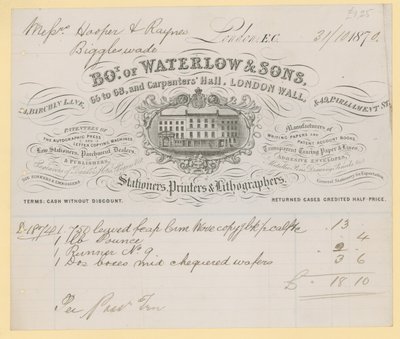 £1.25
Messrs. Hooper & Raynes
London, E.C. 31/10/1870.
Biggleswade
BOT. OF WATERLOW & SONS,
65 to 68, and Carpenters' Hall, LONDON WALL,
24, BIRCHIN LANE, & 49, PARLIAMENT ST.
PATENTEES OF THE AUTOGRAPHIC PRESS
LETTER COPYING MACHINES
Law Stationers, Parchment Dealers,
& PUBLISHERS,
DIE SINKERS & ENGRAVERS
Manufacturers of
WRITING PAPERS AND
PATENT ACCOUNT BOOKS
Transparent Tracing Paper & Linen,
ADHESIVE ENVELOPES,
General Stationery for Exportation.
Stationers, Printers & Lithographers,
TERMS: CASH WITHOUT DISCOUNT. RETURNED CASES CREDITED HALF PRICE.
1 750 leaved fcap Crm Wove copyg 13
1 lb Pounce 4
1 Runner No. 9 2
1 Doz boxes mid chequered wafers 3 6
£ 18 10
Per